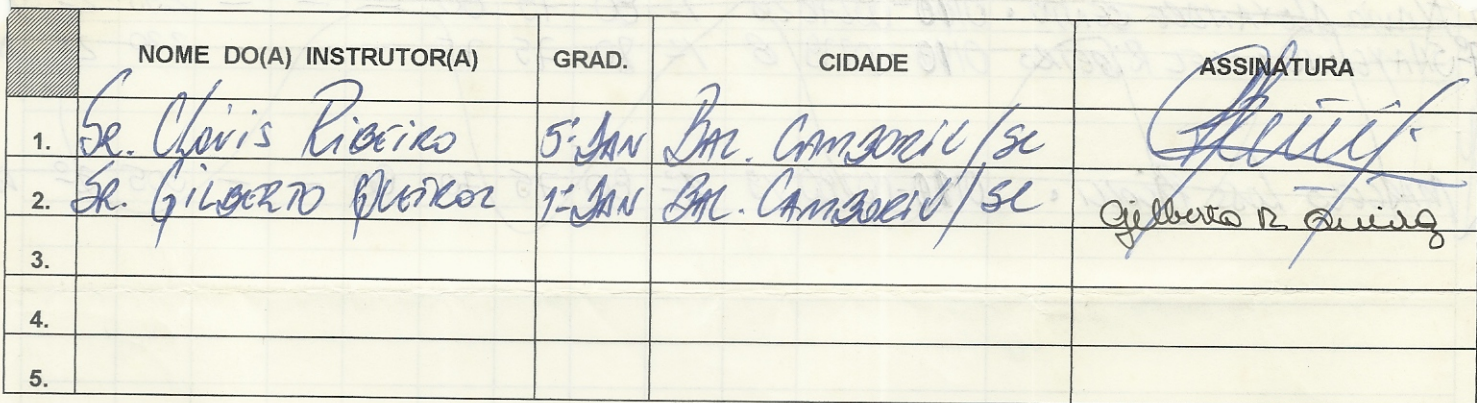 NOME DO(A) INSTRUTOR(A) GRAD. CIDADE ASSINATURA
1. SR. Clóvis RIBEIRO 5º DAN BAL. CAMBORIÚ/SC
2. SR. GILBERTO QUEIROZ 1º DAN BAL. CAMBORIÚ/SC Gilberto R. Queiroz
3.
4.
5.